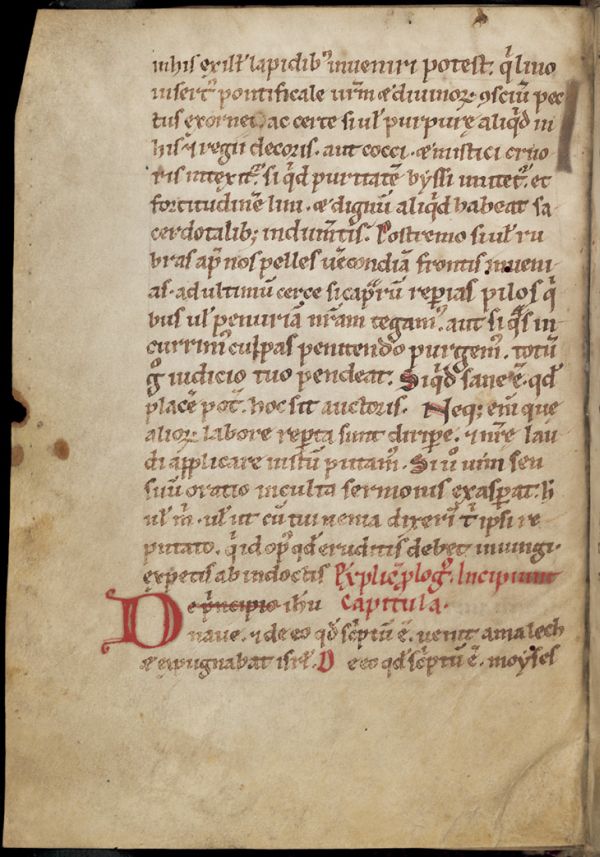 inhis exist̄ lapidib᾽ inveniri potest. q̄ͥ lino
inserᵗ᾽ pontificale urm̄ & divinoꝝ ꝯsciū pec
tus exornet. ac certe si ul᾽ purpurę aliq̄d in
his & regii decoris. aut cocci. & mistici cruo
ris intexit᾽. si q̄d puritatē byssi imitet᾽. et
fortitudinē lini. & dignū aliq̄d habeat sa
cerdotalib; indum̄tis. Postremo si ul᾽ ru
bras ap̄ nos pelles uecondiā frontis inveni
as. ad ultimū certe si cap̄rū rep̄ias pilos q̄
bus ul᾽ penuriā nr̄am tegam᾽. aut si q̄s in
currim᾽ culpas penitendo purgem᾽. totū
g̊ iudicio tuo pendeat. Siq̄d sane ē. qd̄
placē pot̄. hoc sit auctoris. Neq; eni᾽ que
alioꝝ labore rep̄ta sunt dirip̄e. & nr̄e lau
di applicare iustū putam᾽. Si ů urm̄ seu
suū oratio inculta sermonis exasperat. h̄
ul᾽ m̄. ul᾽ ut cū tui nenia dixerī t̄ ipsi re
putato. q̄ id op᾽ qd̄ eruditis debet iniungi.
expetis ab indoctis Explic̄ p̄log᾽. Incipiunt
De p̄ncipio ihu Capitula.
nave. & de eo qd̄ sc̄ptū ē. uenit amalech
& expugnabat isrl̄. De eo qd̄ sc̄ptū ē. moyses